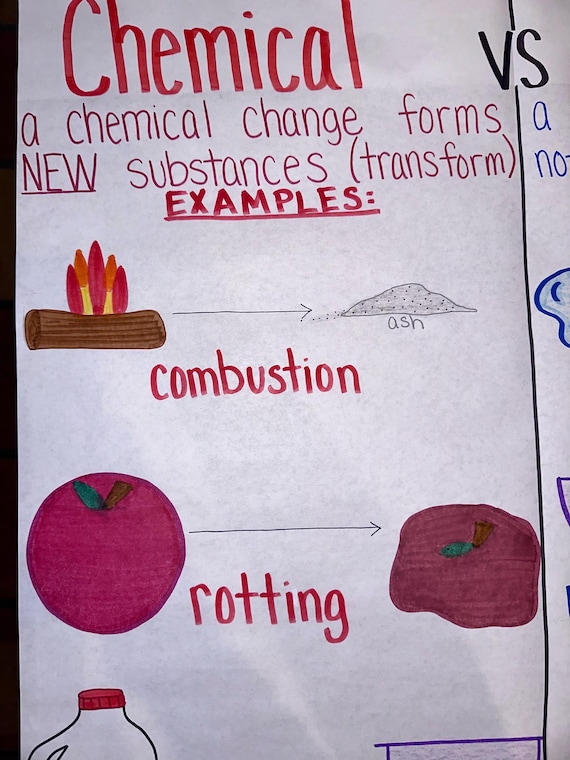 Chemical VS
a chemical change forms a
NEW substances (transform)
EXAMPLES:
ash
combustion
rotting